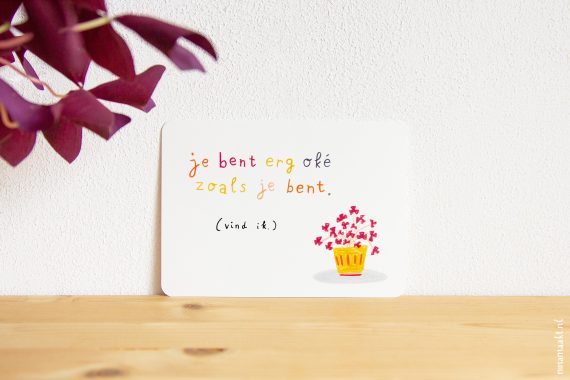 je bent erg oké
zoals je bent.
(vind ik.)
ninamaakt.nl